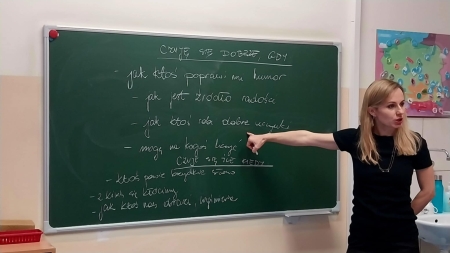 CZUJĘ SIĘ DOBRZE, GDY
- jak ktoś poprawi mi humor
- jak jest źródło radości
- jak ktoś robi dobre uczynki
- mogę na kogoś
CZUJĘ SIĘ ŹLE, GDY
- ktoś powie
- z kimś się kłócimy
- jak ktoś nas obraża,